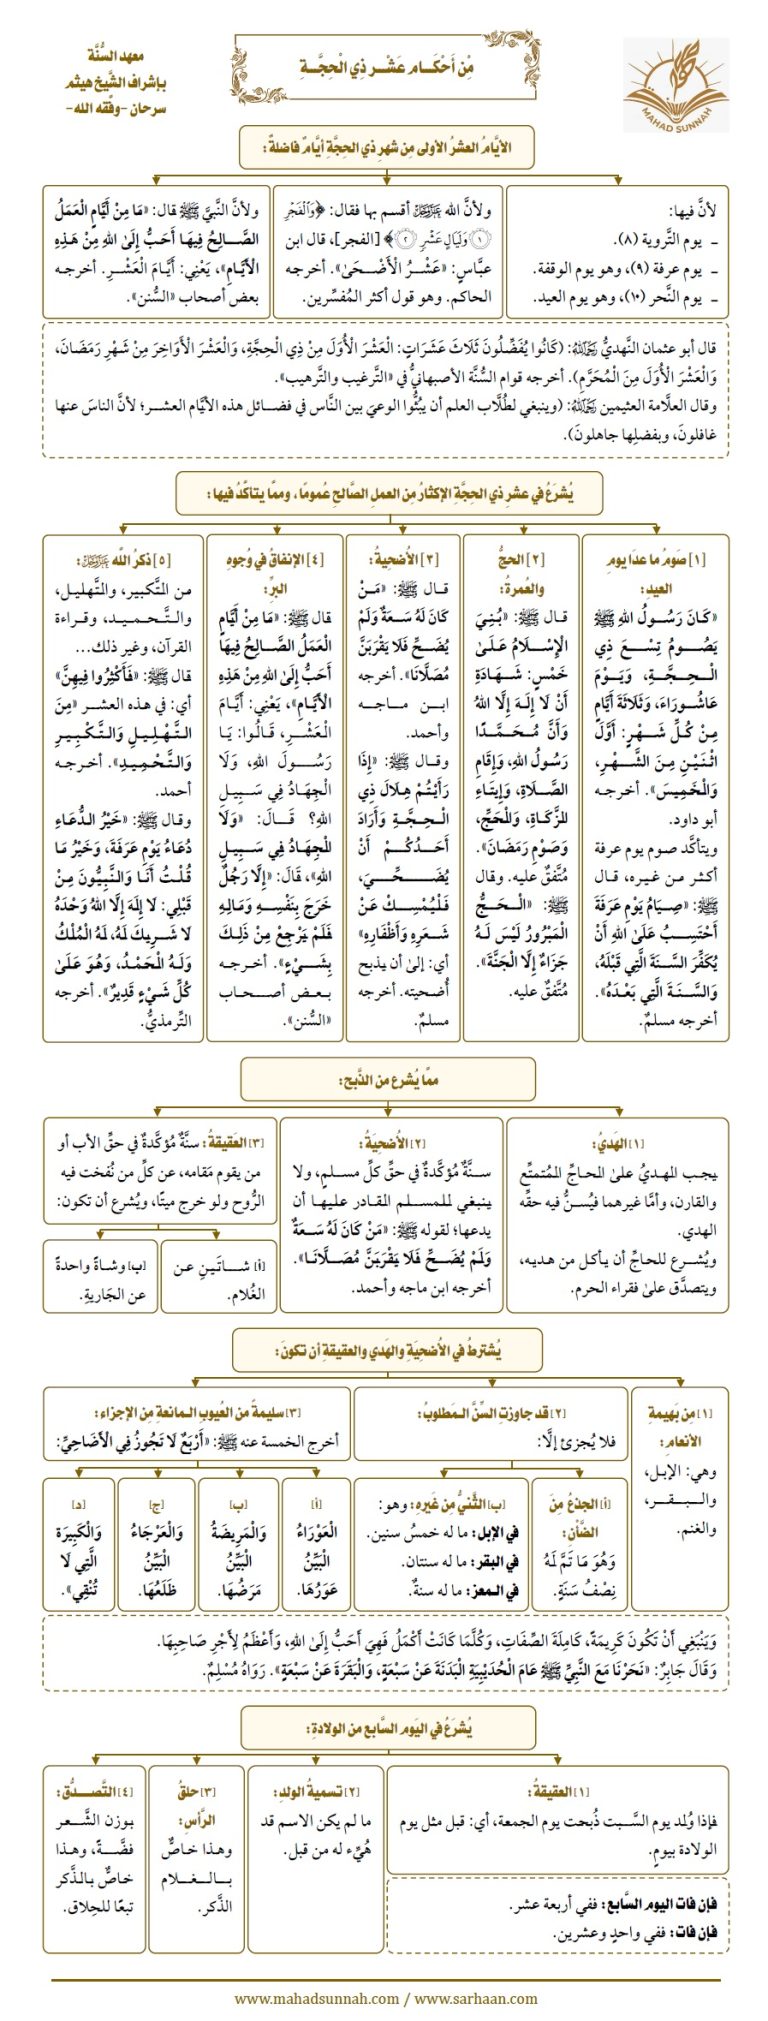 معهد السُّنَّة
بإشراف الشَّيخ هيثم
سرحان -وفَّقه الله-
مِّنْ أَحْكَامِ عَشْرِ ذِي الْحِجَّةِ
MAHAD SUNNAH
الأيَّامُ العشرُ الأولى مِن شهرِ ذي الحِجَّةِ أيَّامٌ فاضلةٌ:
لأنَّ فيها:
ـ يوم التَّروية (٨).
ـ يوم عرفة (٩)، وهو يوم الوقفة.
ـ يوم النَّحر (١٠)، وهو يوم العيد.
ولأنَّ الله ﷻ أقسم بها فقال: ﴿وَالْفَجْرِ
۝١ وَلَيَالٍ عَشْرٍ ۝٢﴾ [الفجر]، قال ابن
عبَّاس: «عَشْرُ الْأَضْحَىٰ». أخرجه
الحاكم. وهو قول أكثر المُفسِّرين.
ولأنَّ النَّبيَّ ﷺ قال: «مَا مِنْ أَيَّامٍ الْعَمَلُ
الصَّالِحُ فِيهَا أَحَبُّ إِلَىٰ اللهِ مِنْ هَذِهِ
الْأَيَّامِ»، يَعْنِي: أَيَّامَ الْعَشْرِ. أخرجه
بعض أصحاب «السُّنن».
قال أبو عثمان النَّهديُّ رَحِمَهُ ٱللَّهُ: (كَانُوا يُفَضِّلُونَ ثَلَاثَ عَشَرَاتٍ: الْعَشْرَ الْأُوَلَ مِنْ ذِي الْحِجَّةِ، وَالْعَشْرَ الْأَوَاخِرَ مِنْ شَهْرِ رَمَضَانَ،
وَالْعَشْرَ الْأُوَلَ مِنَ الْمُحَرَّمِ). أخرجه قوام السُّنَّة الأصبهانيُّ في «التَّرغيب والتَّرهيب».
وقال العلَّامة العثيمين رَحِمَهُ ٱللَّهُ: (وينبغي لطُلَّاب العلم أن يبُثُّوا الوعيَ بين النَّاس في فضائل هذه الأيَّام العشر؛ لأنَّ الناسَ عنها
غافلونَ، وبفضلِها جاهلونَ).
يُشرَعُ في عشرِ ذي الحِجَّةِ الإكثارُ مِن العملِ الصَّالحِ عُمومًا، وممَّا يتأكَّدُ فيها:
[١] صَومُ ما عدَا يومِ
العيدِ:
«كَانَ رَسُولُ اللهِ ﷺ
يَصُومُ تِسْعَ ذِي
الْحِجَّةِ، وَيَوْمَ
عَاشُورَاءَ، وَثَلَاثَةَ أَيَّامٍ
مِنْ كُلِّ شَهْرٍ: أَوَّلَ
اثْنَيْنِ مِنَ الشَّهْرِ،
وَالْخَمِيسَ». أخرجه
أبو داود.
ويتأكَّد صوم يوم عرفة
أكثر من غيره، قال
ﷺ: «صِيَامُ يَوْمِ عَرَفَةَ
أَحْتَسِبُ عَلَىٰ اللهِ أَنْ
يُكَفِّرَ السَّنَةَ الَّتِي قَبْلَهُ،
وَالسَّنَةَ الَّتِي بَعْدَهُ».
أخرجه مسلمٌ.
[٢] الحجُّ
والعُمرةُ:
قال ﷺ: «بُنِيَ
الْإِسْلَامُ عَلَىٰ
خَمْسٍ: شَهَادَةِ
أَنْ لَا إِلَهَ إِلَّا اللهُ
وَأَنَّ مُحَمَّدًا
رَسُولُ اللهِ، وَإِقَامِ
الصَّلَاةِ، وَإِيتَاءِ
الزَّكَاةِ، وَالْحَجِّ،
وَصَوْمِ رَمَضَانَ».
مُتَّفقٌ عليه. وقال
ﷺ: «الْحَجُّ
الْمَبْرُورُ لَيْسَ لَهُ
جَزَاءٌ إِلَّا الْجَنَّةُ».
مُتَّفقٌ عليه.
[٣] الأُضحيةُ:
قال ﷺ: «مَنْ
كَانَ لَهُ سَعَةٌ وَلَمْ
يُضَحِّ فَلَا يَقْرَبَنَّ
مُصَلَّانَا». أخرجه
ابن ماجه
وأحمد.
وقال ﷺ: «إِذَا
رَأَيْتُمْ هِلَالَ ذِي
الْحِجَّةِ وَأَرَادَ
أَحَدُكُمْ أَنْ
يُضَحِّيَ،
فَلْيُمْسِكْ عَنْ
شَعَرِهِ وَأَظْفَارِهِ»
أي: إلىٰ أن يذبح
أُضحيته. أخرجه
مسلمٌ.
[٤] الإنفاقُ في وُجوهِ
البرِّ:
قال ﷺ: «مَا مِنْ أَيَّامٍ
الْعَمَلُ الصَّالِحُ فِيهَا
أَحَبُّ إِلَىٰ اللهِ مِنْ هَذِهِ
الْأَيَّامِ»، يَعْنِي: أَيَّامَ
الْعَشْرِ، قَالُوا: يَا
رَسُولَ اللهِ، وَلَا
الْجِهَادُ فِي سَبِيلِ
اللهِ؟ قَالَ: «وَلَا
الْجِهَادُ فِي سَبِيلِ
اللهِ»، قَالَ: «إِلَّا رَجُلٌ
خَرَجَ بِنَفْسِهِ وَمَالِهِ
فَلَمْ يَرْجِعْ مِنْ ذَلِكَ
بِشَيْءٍ». أخرجه
بعض أصحاب
«السُّنن».
[٥] ذكرُ اللَّه ﷻ:
من التَّكبير، والتَّهليل،
والتَّحميد، وقراءة
القرآن، وغير ذلك...
قال ﷺ: «فَأَكْثِرُوا فِيهِنَّ»
أي: في هذه العشر «مِنَ
التَّهْلِيلِ وَالتَّكْبِيرِ
وَالتَّحْمِيدِ». أخرجه
أحمد.
وقال ﷺ: «خَيْرُ الدُّعَاءِ
دُعَاءُ يَوْمِ عَرَفَةَ، وَخَيْرُ مَا
قُلْتُ أَنَا وَالنَّبِيُّونَ مِنْ
قَبْلِي: لَا إِلَهَ إِلَّا اللهُ وَحْدَهُ
لَا شَرِيكَ لَهُ، لَهُ الْمُلْكُ
وَلَهُ الْحَمْدُ، وَهُوَ عَلَىٰ
كُلِّ شَيْءٍ قَدِيرٌ». أخرجه
التِّرمذيُّ.
ممَّا يُشرع من الذَّبح:
[١] الهَديُ:
يجب الهديُ علىٰ الحاجِّ المُتمتِّع
والقارن، وأمَّا غيرهما فيُسنُّ فيه حقِّه
الهدي.
ويُشرع للحاجِّ أن يأكل من هديه،
ويتصدَّق علىٰ فقراء الحرم.
[٢] الأُضحيَةُ:
سنَّةٌ مُؤكَّدةٌ في حقِّ كلِّ مسلمٍ، ولا
ينبغي للمسلم القادر عليها أن
يدعها؛ لقوله ﷺ: «مَنْ كَانَ لَهُ سَعَةٌ
وَلَمْ يُضَحِّ فَلَا يَقْرَبَنَّ مُصَلَّانَا».
أخرجه ابن ماجه وأحمد.
[٣] العَقيقةُ: سنَّةٌ مُؤكَّدةٌ في حقِّ الأب أو
من يقوم مَقامه، عن كلِّ من نُفخت فيه
الرُّوح ولو خرج ميتًا، ويُشرع أن تكون:
[أ] شاتَينِ عن
الغُلام.
[ب] وشاةً واحدةً
عن الجَاريةِ.
يُشترطُ في الأُضحيَةِ والهَديِ والعقيقةِ أن تكونَ:
[١] مِن بَهيمةِ
الأنعامِ:
وهي: الإبل،
والبقر،
والغنم.
[٢] قد جاوزتِ السِّنَّ المَطلوبُ:
فلا يُجزئ إلَّا:
[أ] الجذعُ مِنَ
الضَّأنِ:
وَهُوَ مَا تَمَّ لَهُ
نِصْفُ سَنَةٍ.
[ب] الثَّنيُّ مِن غَيرِهِ: وهو:
في الإبل: ما له خمسُ سنين.
في البقر: ما له سنتان.
في المعز: ما له سنةٌ.
[٣] سليمةً من العُيوبِ المانعةِ مِن الإجزاءِ:
أخرج الخمسة عنه ﷺ: «أَرْبَعٌ لَا تَجُوزُ فِي الْأَضَاحِيِّ:
[أ]
الْعَوْرَاءُ
الْبَيِّنُ
عَوَرُهَا.
[ب]
وَالْمَرِيضَةُ
الْبَيِّنُ
مَرَضُهَا.
[ج]
وَالْعَرْجَاءُ
الْبَيِّنُ
ظَلَعُهَا.
[د]
وَالْكَبِيرَة
الَّتِي لَا
تُنْقِي».
وَيَنْبَغِي أَنْ تَكُونَ كَرِيمَةً، كَامِلَةَ الصِّفَاتِ، وَكُلَّمَا كَانَتْ أَكْمَلُ فَهِيَ أَحَبُّ إِلَىٰ اللهِ، وَأَعْظَمُ لِأَجْرِ صَاحِبِهَا.
وَقَالَ جَابِرٌ: «نَحَرْنَا مَعَ النَّبِيِّ ﷺ عَامَ الْحُدَيْبِيَةِ الْبَدَنَةَ عَنْ سَبْعَةٍ، وَالْبَقَرَةَ عَنْ سَبْعَةٍ». رَوَاهُ مُسْلِمٌ.
يُشرَعُ في اليَومِ السَّابعِ من الولادةِ:
[١] العقيقةُ:
فإذا وُلد يوم السَّبت ذُبحت يوم الجمعة، أي: قبل مثل يوم
الولادة بيومٍ.
فإن فات اليوم السَّابع: ففي أربعة عشر.
فإن فات: ففي واحدٍ وعشرين.
[٢] تسميةُ الولدِ:
ما لم يكن الاسم قد
هُيِّء له من قبل.
[٣] حلقُ
الرَّأسِ:
وهذا خاصٌّ
بالغلام
الذَّكر.
[٤] التَّصدُّق:
بوزن الشَّعر
فضَّةً، وهذا
خاصٌّ بالذَّكر
تبعًا للحِلاق.
www.mahadsunnah.com / www.sarhaan.com